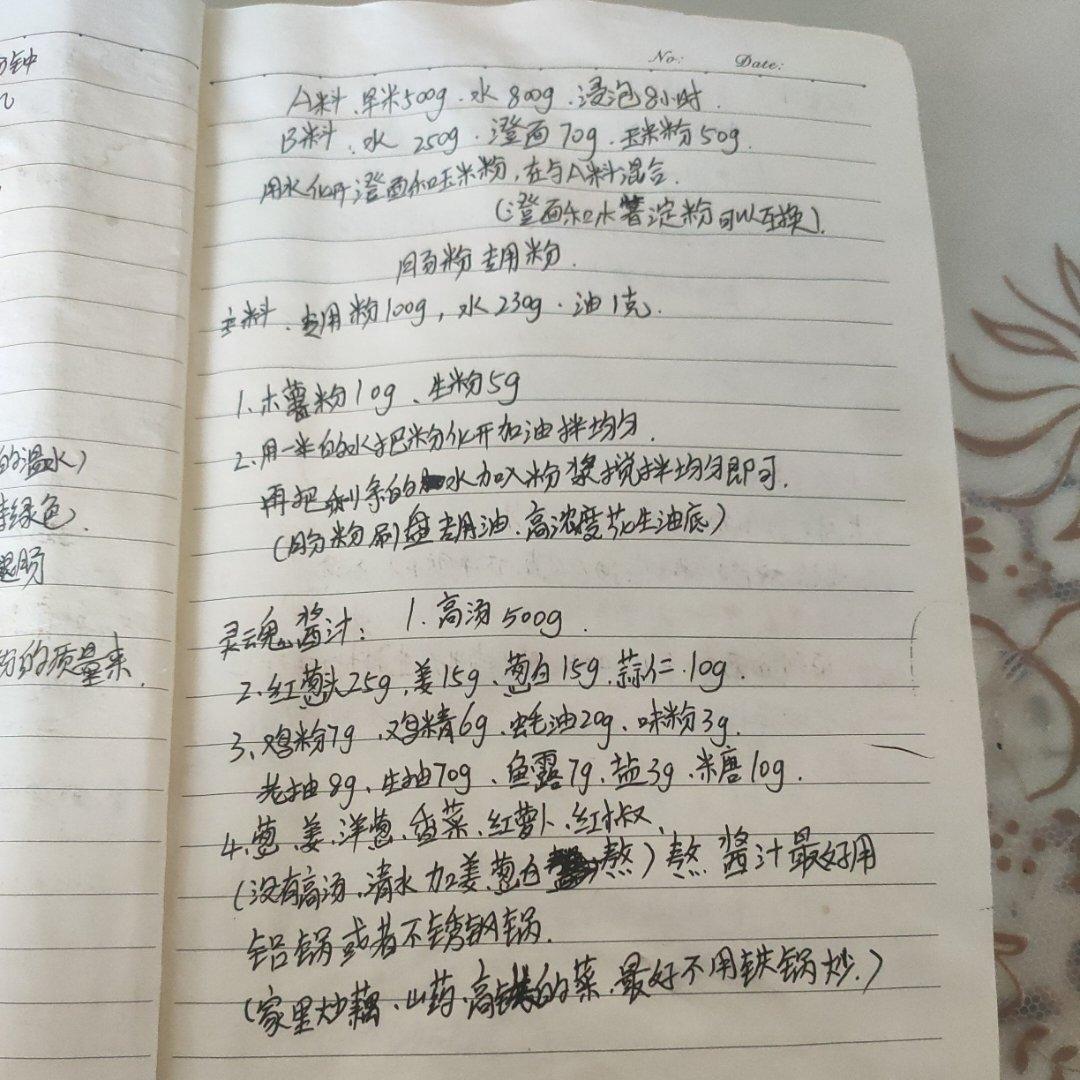 分钟
的温水)
绿色.
的质量来.
No: Date:
A料、早米500g、水800g、浸泡8小时.
B料、水 250g、澄面70g、玉米粉50g.
用水化开澄面和玉米粉,在与A料混合.
(澄面和水薯淀粉可以互换).
肠粉专用粉.
主料、专用粉100g,水230g、油1克.
1.木薯粉10g、生粉5g
2.用一半的水把粉化开加油拌均匀.
再把剩余的水加入粉浆搅拌均匀即可.
(肠粉刷盘专用油、高浓度花生油底)
灵魂酱汁: 1.高汤500g.
2.红葱头25g、姜15g、葱白15g、蒜仁10g.
3、鸡粉7g、鸡精6g、蚝油20g、味粉3g.
老抽8g、生抽70g、鱼露7g、盐3g、米唐10g.
4、葱、姜、洋葱、香菜、红萝卜、红椒、
(没有高汤、清水加姜、葱白熬)熬酱汁最好用
铝锅或者不锈钢锅.
(家里炒藕、山药、高铁的菜、最好不用铁锅炒.)